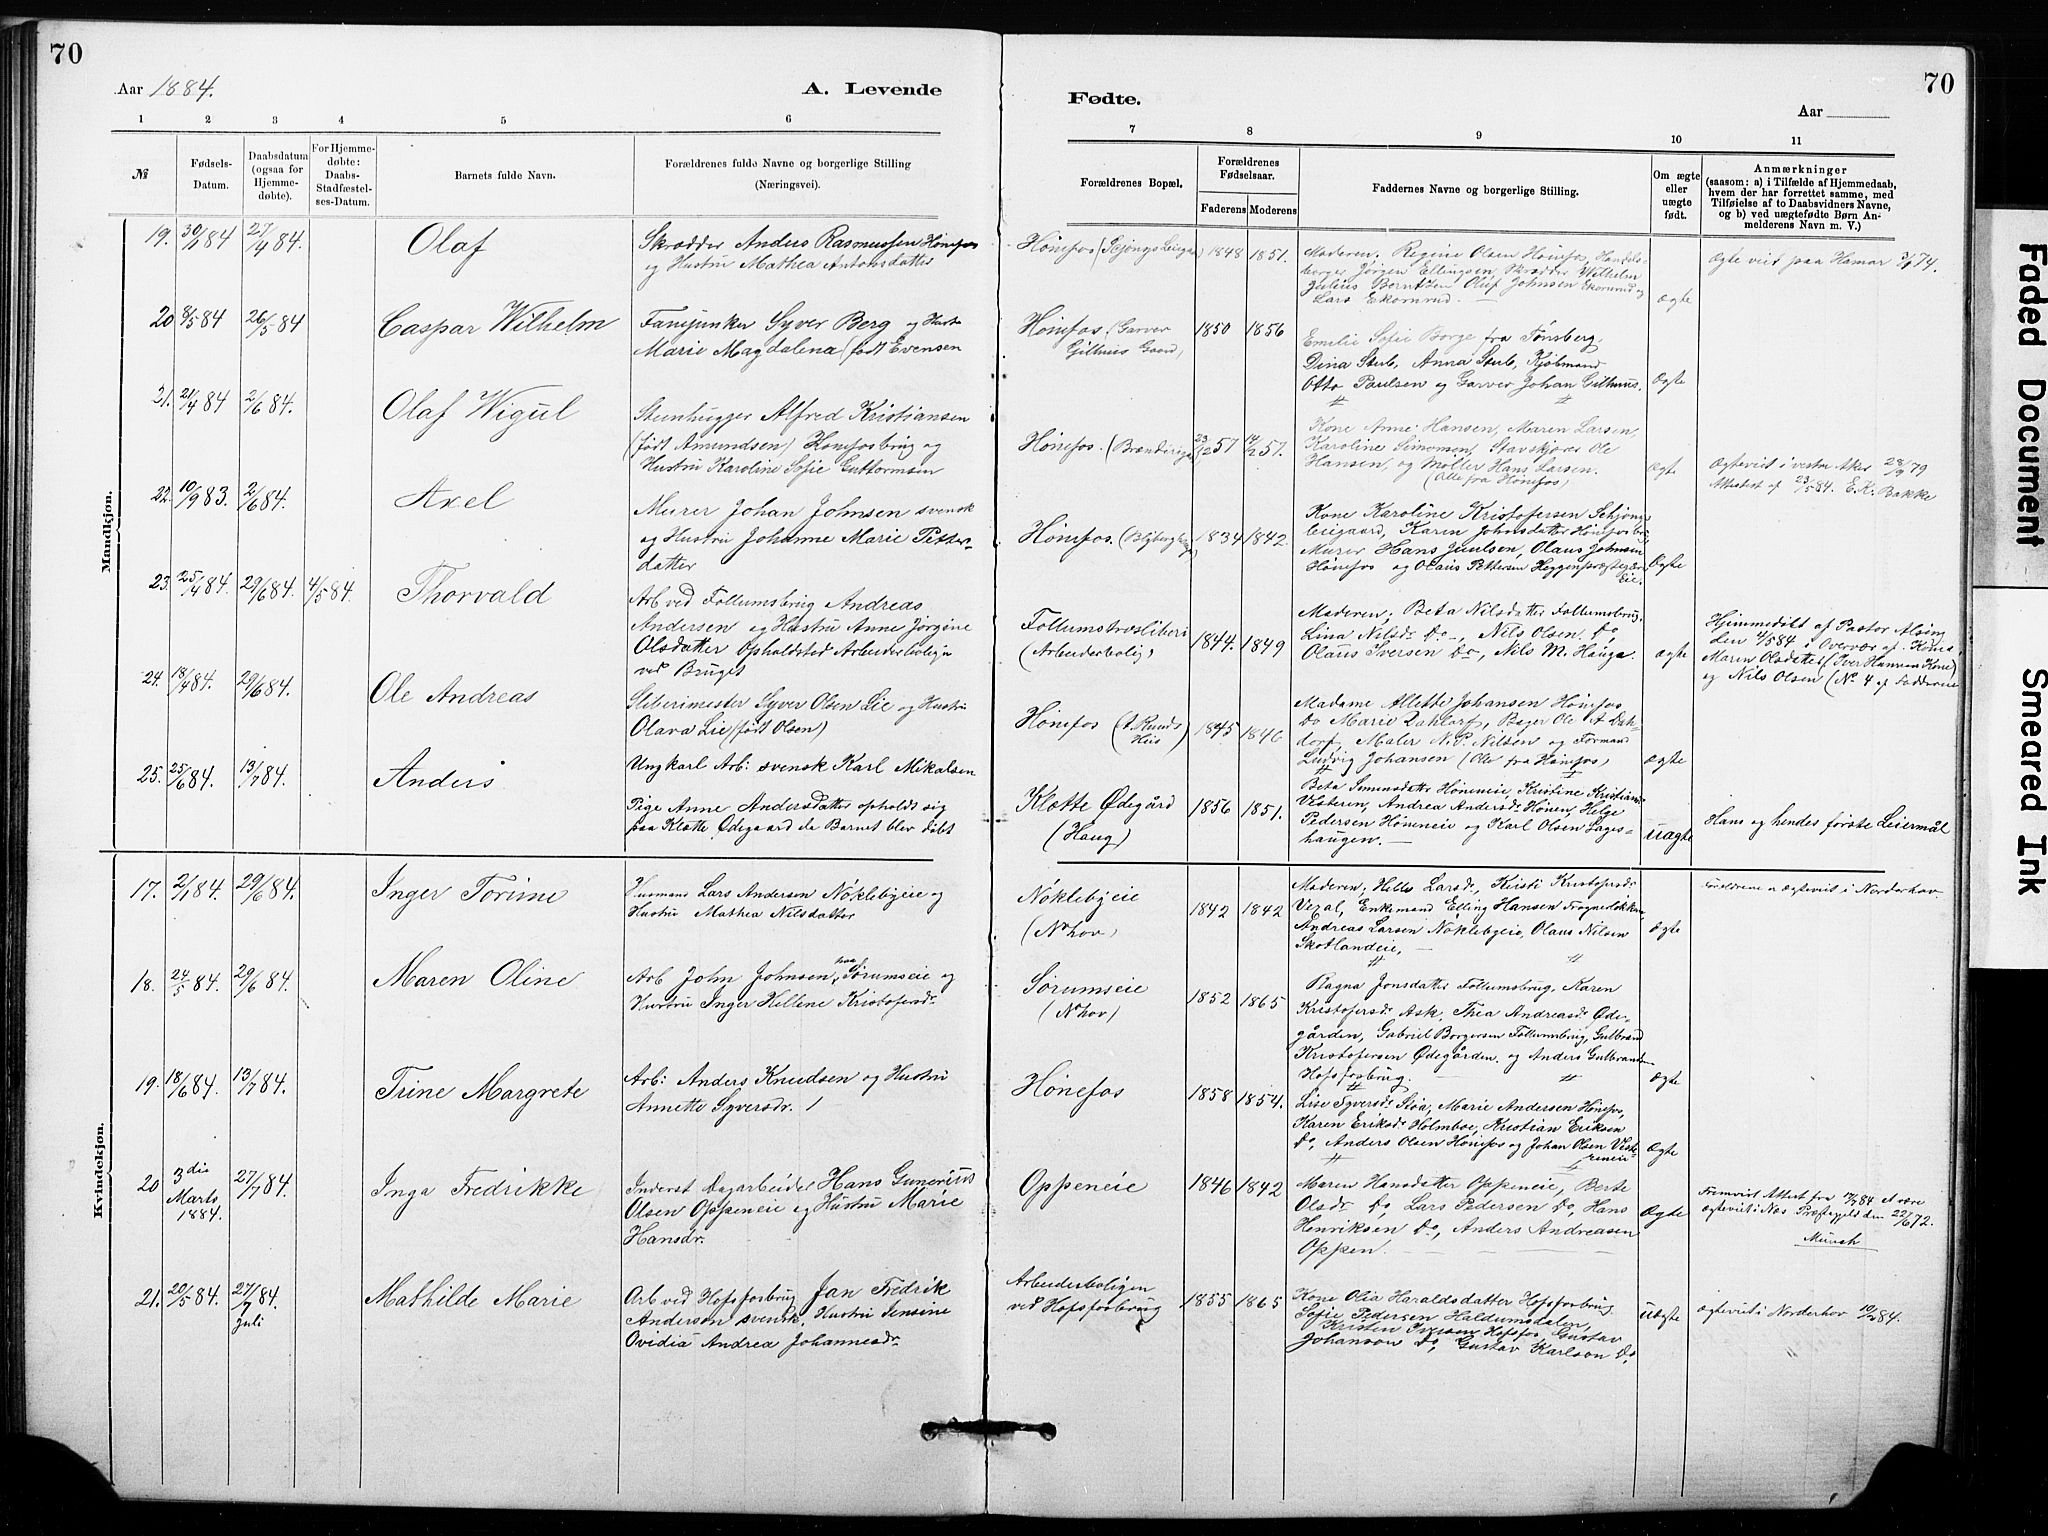 70
Aar 1884.
A. Levende
1 2 3 4 5 6
№
Fødsels-
Datum.
Daabsdatum
(ogsaa for
Hjemme-
døbte).
For Hjemme-
døbte:
Daabs-
Stadfæstel-
ses-Datum.
Barnets fulde Navn.
Forældrenes fulde Navne og borgerlige Stilling
(Næringsvei).
Mandkjøn.
19. 84 27/4 84. Olaf
Skrædder Anders Rasmussen Hönefos
og Hustru Mathea Antonsdatter
20 8/5 84 26/5 84 Caspar Wilhelm
Fanejunker Syver Berg og Hust
Marie Magdalena (født Evensen
21. 21/4 84 2/6 84. Olaf Wigul
Stenhugger Alfred Kristiansen
(født Amundsen) Hönefosbrug og
Hustru Karoline Sofie Guttormsen
22. 10/9 83. 2/6 84. Axel
Murer Johan Johnsen svensk
og Hustru Johanne Marie Pitter-
datter
23. 25/4 84. 29/6 84. 4/5 84. Thorvald
Arb ved Follumsbrug Andreas
Andersen og Hustru Anne Jörgine
Olsdatter Opholdsted Arbeiderbolign
ved Bruget
24. 18/4 84. 29/6 84. Ole Andreas
Sliberimester Syver Olsen Lie og Hustru
Olava Lie (født Olsen)
25. 25/6 84. 13/7 84. Anders
Ungkarl Arb: svensk Karl Mikalsen
Pige Anne Andersdatter opholdt sig
paa Klætte Ødegaard da Barnet blev döbt
Kvindekjøn.
17. 2/1 84. 29/6 84. Inger Torine
Husmand Lars Andersen Nöklebyeie og
Hustru Mathea Nilsdatter
18. 24/5 84. 29/6 84. Maren Oline
Arb John Johnsen paa Sørumseie og
Hustru Inger Hellene Kristofersdr
19. 18/6 84. 13/7 84. Trine Margrete
Arb: Anders Knudsen og Hustru
Annette Syversdr.
20 3die
Marts
1884. 27/7 84. Inga Fredrikke
Inderst Dagarbeider Hans Gunerius
Olsen Oppeneie og Hustru Marie
Hansdr.
21. 20/5 84. 27/7 84.
Juli Mathilde Marie
Arb ved Hofsforbrug Jan Fredrik
Anderson svensk, Hustru Jensine
Ovidia Andrea Johannesdr
70
Fødte.
Aar
7 8 9 10 11
Forældrenes Bopæl.
Forældrenes
Fødselsaar.
Faderens Moderens
Faddernes Navne og borgerlige Stilling.
Om ægte
eller
uægte
født.
Anmærkninger
(saasom: a) i Tilfælde af Hjemmedaab,
hvem der har forrettet samme, med
Tilføielse af to Daabsvidners Navne,
og b) ved uægtefødte Børn An-
melderens Navn m. V.)
Hönefos 1848 1851.
Moderen, Regine Olsen Hönefos, Handels-
borger Jörgen Ellingsen, Skrædder Wilhelm
Julius Berntsen Oluf Johnsen Ekornrud og
Lars Ekornrud.
ægte
Ægte viet paa Hamar
Hönefos (Garver
Gilhuus Gaard) 1850 1856
Emelie Sofie Borge fra Tönsberg,
Dina Stub, Anna Stub, Kjöbmand
Otto Paulsen og Garver Johan Gilhuus.
Ægte
Hönefos. 57 57.
Kone Anne Hansen, Maren Larsen,
Karoline Simonsen, Stavskjærer Ole
Hansen, og Möller Hans Larsen.
(Alle fra Hönefos)
Ægte
Ægteviet i vestre Aker 28/9 79
Attestest af 23/5 84. E.K. Bakke
Hönefos. 1834 1842.
Kone Karoline Kristofersen Schjong
leiegaard, Karen Johnsdatter Hönefosbru
Murer Hans Juulsen, Olaus Johnsen
Hönefos og Olaus Pettersen Heggen
Eie.
Ægte
Follumstræsliberi
(Arbeiderbolig) 1844. 1849
Moderen, Beta Nilsdatter Follumsbrug,
Lina Nilsdr Do, Nils Olsen Do,
Olaus Iversen Do, Nils M. Hauga.
ægte
Hjemmedöbt af Pastor Alsing
den 4/5 84, i Overvær af Kone
Maren Olsdatter (Iver Hansens Kone)
og Nils Olsen (No 4 af Fadderne
Hönefos 1845 1846
Madame Allette Johansen Hönefos
Do Marie Dahldorf, Bager Ole A Dah-
dorf, Maler N. P. Nilsen og Formand
Ludvig Johansen (Alle fra Hönefos)
ægte
Klætte Ødegård
(Haug) 1856 1851.
Beta Simensdatter Höneneie, Kristine Kristiansd
Vesteren, Andrea Andersdr Hönen, Helge
Pedersen Höneneie og Karl Olsen Lages-
haugen.
uægte
Hans og hendes første Leiermål
Nöklebyeie
(N hov) 1842 1842
Moderen, Helle Larsdr, Kristi Kristofersdr
Veral, Enkemand Elling Hansen Frognerløkken
Andreas Larsen Nöklebyeie, Olaus Nilsen
Skotlandeie,
ægte
Forældrene er Ægteviet i Norderhov
Sørumseie
(N hov) 1852 1865
Ragna Jonsdatter Follumsbrug, Karen
Kristofersdr Ask, Thea Andreasdr Øde-
gården, Gabriel Borgersen Follumsbrug, Gulbrand
Kristofersen Ødegården og Anders Gulbrandsen
Hofsforbrug.
Ægte
Hönefos 1858 1854.
Lise Syversdr Stoa, Marie Andersen Hönefos,
Karen Eriksdr Holmboe, Kristian Eriksen
Do, Anders Olsen Hönefos og Johan Olsen Veste-
reneie
Ægte
Oppeneie 1846 1842
Maren Hansdatter Oppeneie, Berte
Olsdr Do, Lars Pedersen Do, Hans
Henriksen Do, Anders Andreasen
Oppen.
Ægte
Fremvist Attest fra 84 at være
ægteviet i Næs Præstegjeld den 22/6 72.
Münch
Arbeiderboligen
ved Hofsforbrug 1855 1865
Kone Olia Haraldsdatter Hofsforbrug
Sofie Pedersen Haldumsdalen,
Kristen Iversen Hofsfos, Gustav
Johanson Do, Gustav Karlson Do.
uægte
Ægteviet i Norderhov 84.
Faded Document
Smeared Ink